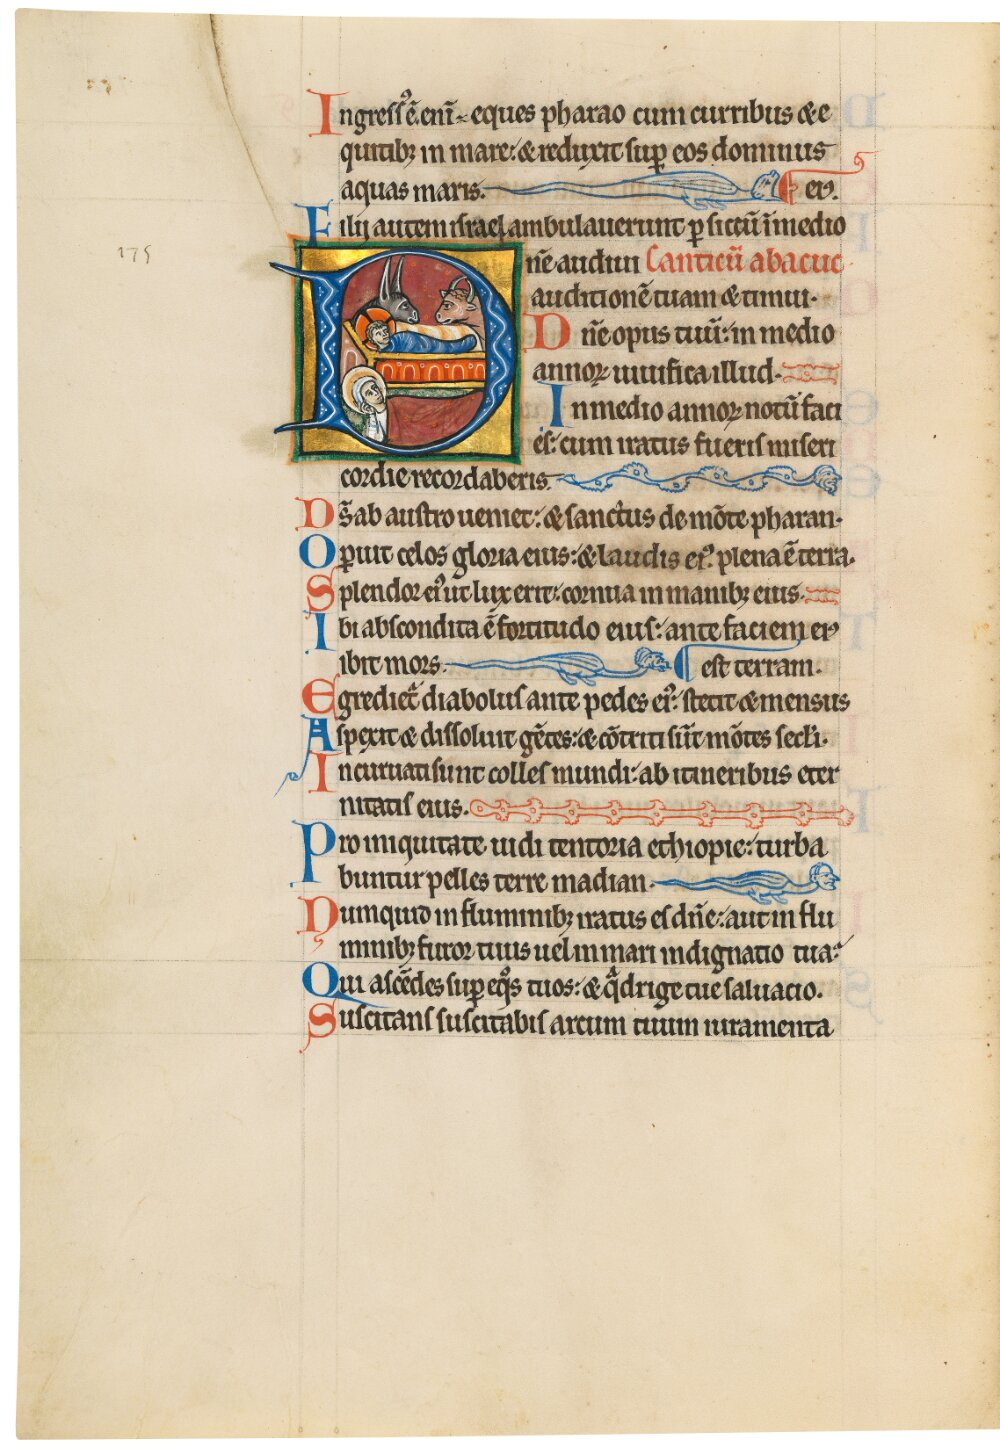 Ingressꝰ ē. eni̅ eques pharao cum curribus & e
quitibꝫ in mare: & reduxit sup̲ eos dominus
aquas maris. eiꝰ.
Filij autem israel ambulauerunt p̲ siccū i̅ medio
175
Dn̄e audiui Canticū abacuc
auditionē tuam & timui.
Dn̄e opus tuū: in medio
annoꝝ uiuifica illud.
In medio annoꝝ notū faci
es: cum iratus fueris miseri
cordie recordaberis.
Ds̄ ab austro ueniet: & sanctus de mōte pharan.
Op̲uit celos gloria eius: & laudis eiꝰ plena ē terra.
Splendor eiꝰ ut lux erit: cornua in manibꝫ eius.
Ibi abscondita ē fortitudo eius: ante faciem eiꝰ
ibit mors. est terram.
Egrediet᷑ diabolus ante pedes eiꝰ: stetit & mensus
Aspexit & dissoluit gētes: & cōtriti sūt mōtes secl̄i.
Incuruati sunt colles mundi: ab itineribus eter
nitatis eius.
Pro iniquitate uidi tentoria ethiopie: turba
buntur pelles terre madian.
Numquid in fluminibꝫ iratus es dn̄e: aut in flu
minibꝫ furor tuus uel in mari indignatio tua:
Qui ascēdes sup̲ eqͦs tuos: & qͣdrige tue saluatio.
Suscitans suscitabis arcum tuum iuramenta